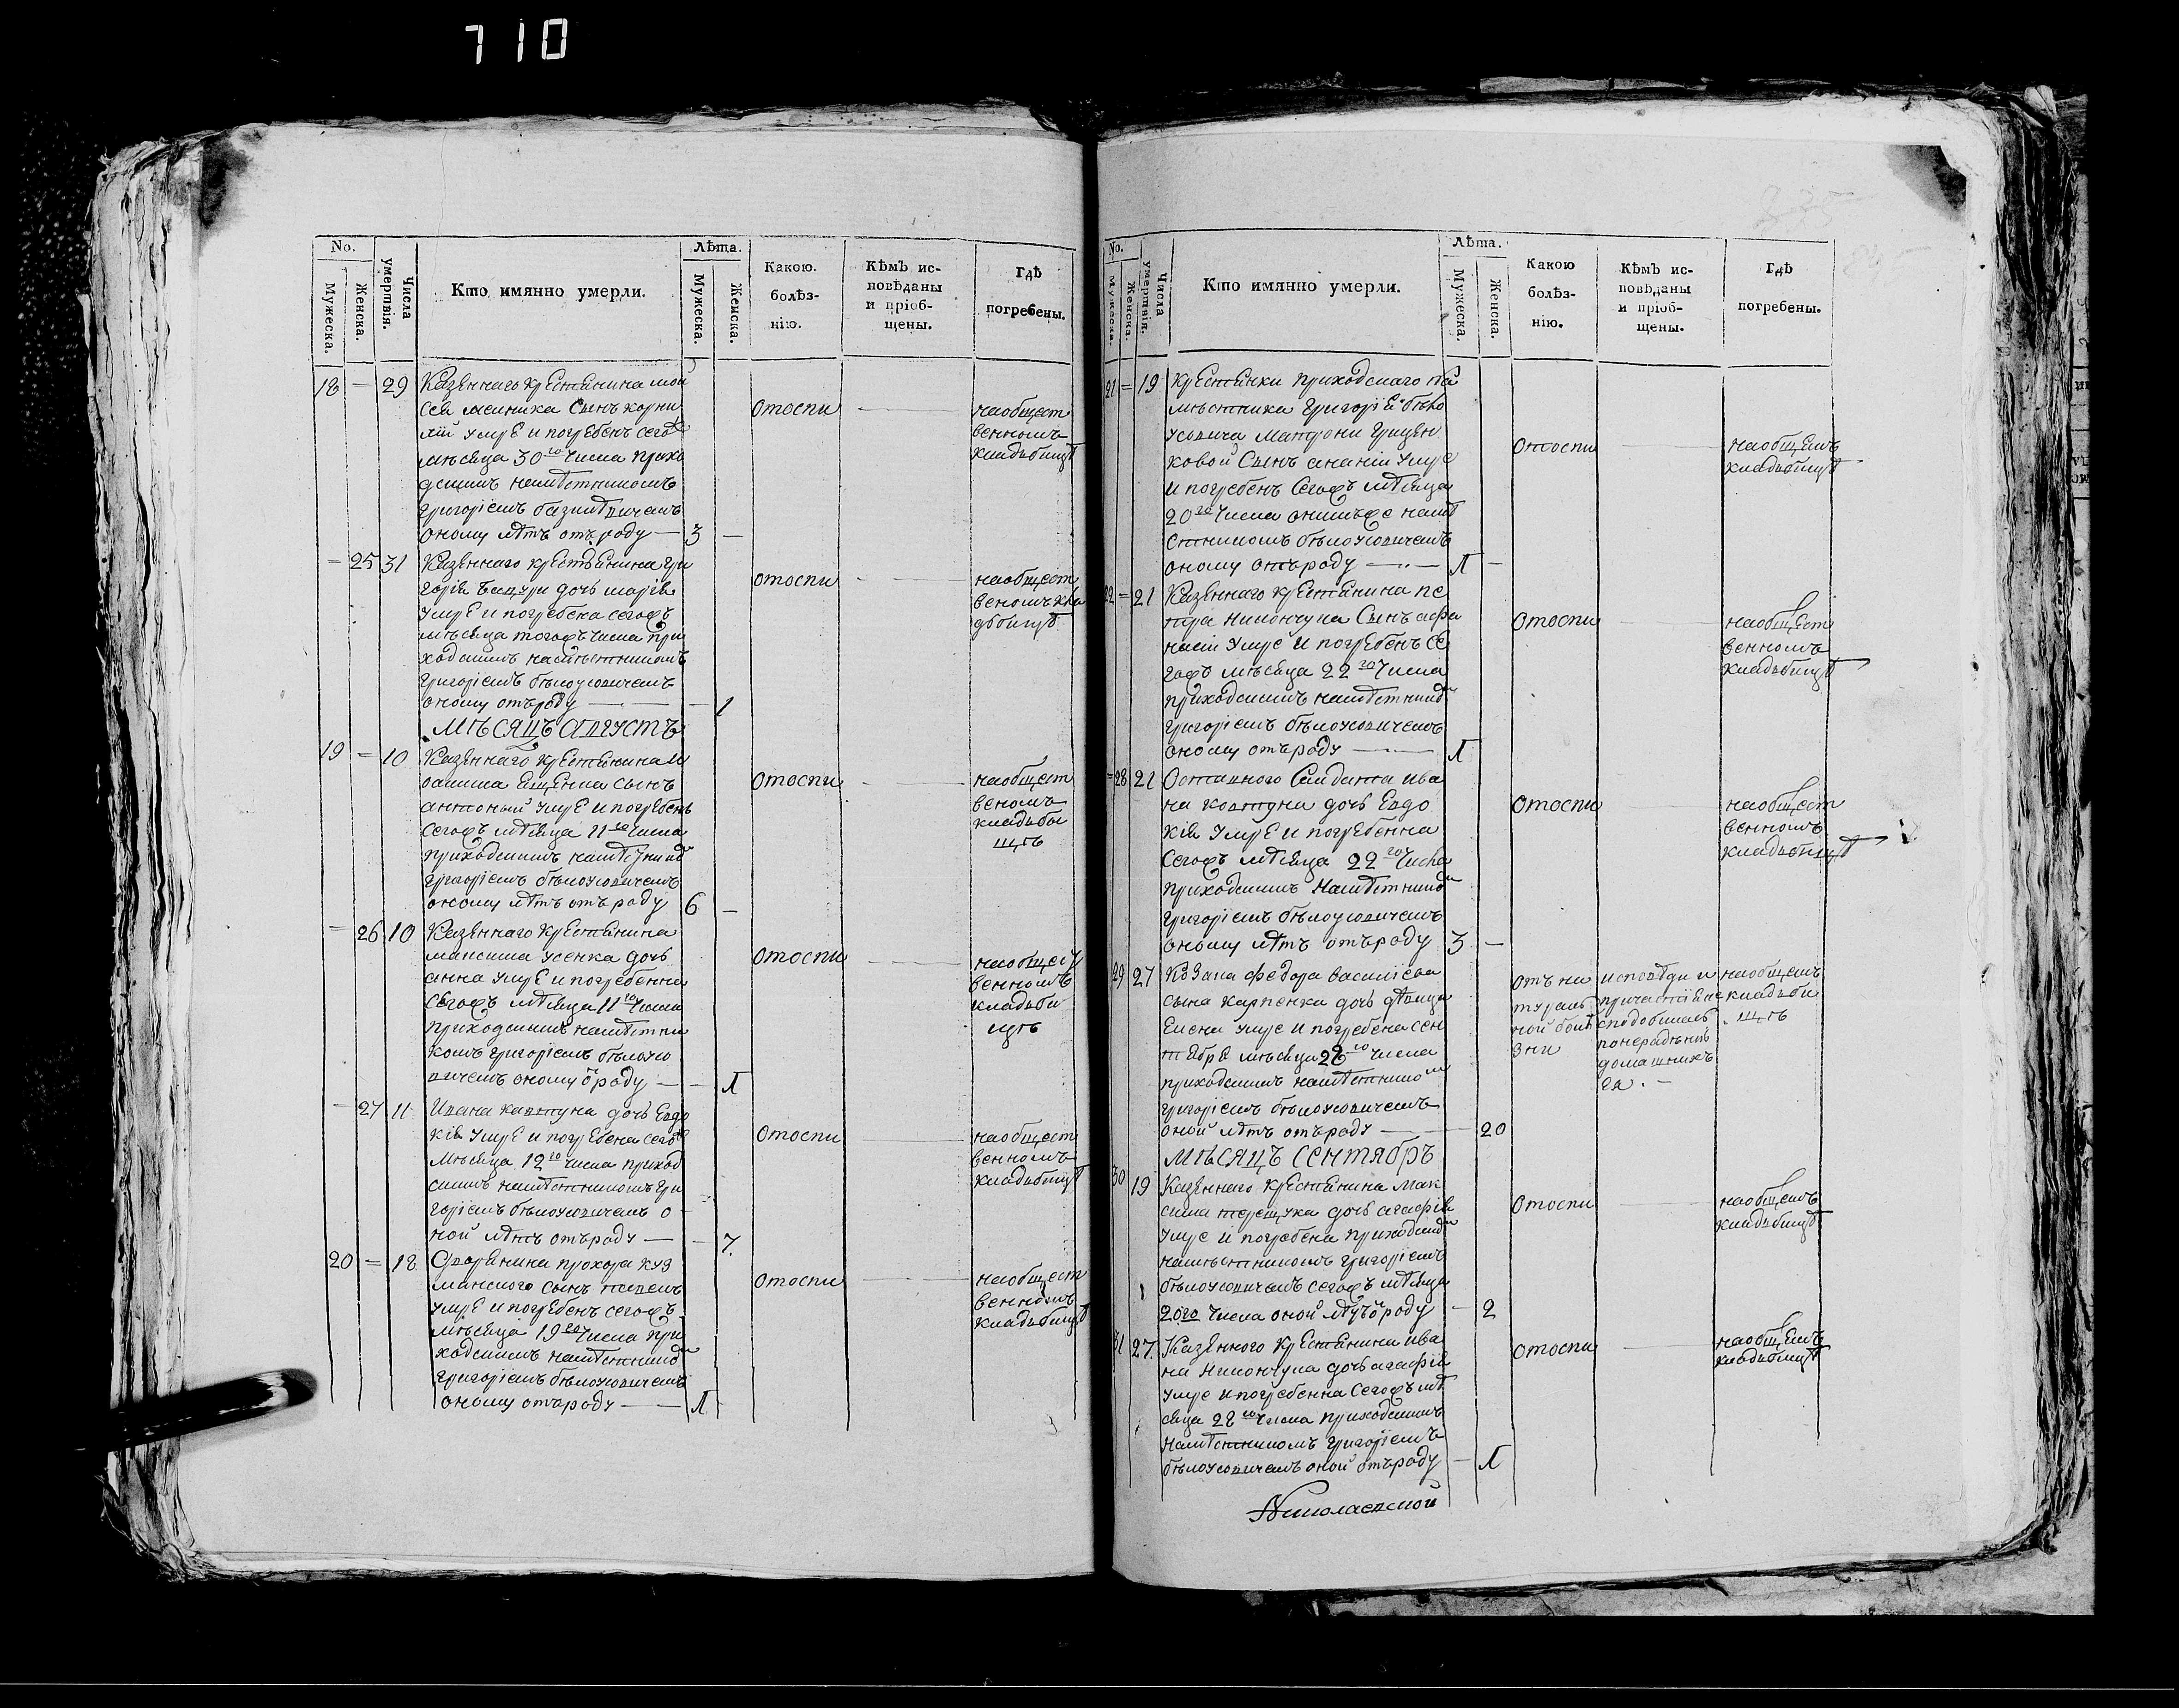 710
No.
Мужеска.
Женска.
Числа умертвія.
Кто имянно умерли.
Лѣта.
Мужеска.
Женска.
Какою.
болѣз-
нію.
Кѣмъ ис-
повѣданы
и пріоб-
щены.
Гдѣ
погребены.
18 — 29 Казеннаго крестянина мои
сея сынъ корни
лій умре и погребенъ сего
мѣсяца 30го числа прихо
дскимъ намѣстникомъ
григоріемъ
оному лѣтъ отъ роду — 3 —
отоспи
наобщест
венномъ
кладбищѣ
— 25 31 Казеннаго крестьянина гри
горія дочь марія
умре и погребена сегожъ
мѣсяца тогожъ числа при
ходскимъ намѣстникомъ
григоріемъ бѣлоусовичемъ
оному отъроду — — 1
отоспи
наобщест
веномъ кла
дбищѣ
МѢСЯЦЪ АВГУСТЪ
19 — 10 Казеннаго крестянина и
оакима ещенка сынъ
антоный умре и погребенъ
сегожъ мѣсяца 11го числа
приходскимъ намѣстник
григоріемъ бѣлоусовичемъ
оному лѣтъ отъ роду 6 —
отоспи
наобщест
веномъ
кладби
щѣ
— 26 10 Казеннаго крестянина
максима усенка дочь
анна умре и погребенна
сегожъ мѣсяца 11го числа
приходскимъ намѣстни
комъ григоріемъ бѣлоусо
вичемъ оному роду — — Л
отоспи
наобщест
венномъ
кладби
щѣ
— 27 11 Ивана ковтуна дочь Евдо
кія умре и погребена сего
мѣсяца 12го числа приход
скимъ намѣстникомъ гри
горіемъ бѣлоусовичемъ о
ной лѣтъ отъроду — — 7.
отоспи
наобщест
венномъ
кладбищѣ
20 = 18 Дворянина прохора куз
манского сынъ павелъ
умре и погребенъ сегожъ
мѣсяца 19го числа при
ходскимъ намѣстником
григоріемъ бѣлоусовичемъ
оному отъроду — — Л
отоспи
наобщест
венномъ
кладбищѣ
No.
Мужеска.
Женска.
Числа умертвія.
Кто имянно умерли.
Лѣта.
Мужеска.
Женска.
Какою
болѣз-
нію.
Кѣмъ ис-
повѣданы
и пріоб-
щены.
Гдѣ
погребены.
21 = 19 Крестянки приходскаго на
мѣстника григорія бѣло
усовича матрони грицен
ковой сынъ ананіи умре
и погребенъ сегожъ мѣсяца
20го числа онимъже намѣ
стникомъ бѣлоусовичемъ
оному отъроду — Л —
отоспи
наобщемъ
кладбищѣ
22 = 21 Казеннаго крестянина пе
тра никончука сынъ афа
насіи умре и погребенъ се
гожъ мѣсяца 22го числа
приходскимъ намѣстник
григоріемъ бѣлоусовичемъ
оному отъроду — Л
отоспи
наобщест
венномъ
кладбищѣ
= 28 21 Оставного салдата ива
на ковтуна дочь Евдо
кія умре и погребенна
сегожъ мѣсяца 22го числа
приходскимъ намѣстником
григоріемъ бѣлоусовичемъ
оному лѣтъ отъроду 3 —
отоспи
наобщест
венномъ
кладбищѣ
29 27 Козака федора василіева
сына карпенка дочь дѣвица
Елена умре и погребена сен
тября мѣсяца 28го числа
приходскимъ намѣстником
григоріемъ бѣлоусовичемъ
оной лѣтъ отъроду — 20
отъ на
турал
ной болѣ
зни
исповѣди и
причастія не
сподобилась
понерадѣнію
домашнихъ
ея. —
наобщемъ
кладби
щѣ
МѢСЯЦЪ СЕНТЯБРЪ
30 19 Казеннаго крестянина мак
сима терещука дочь агафія
умре и погребена приходским
намѣстникомъ григоріемъ
бѣлоусовичемъ сегожъ мѣсяца
20го числа оной лѣтъ роду — 2
отоспи
наобщемъ
кладбищѣ
31 27. Казенного крестянина ива
на никончука дочь агафія
умре и погребенна сегожъ мѣ
сяца 28го числа приходскимъ
намѣстникомъ григоріемъ
бѣлоусовичемъ оной отъроду — Л
отоспи
наобщемъ
кладбищѣ
Николаевской